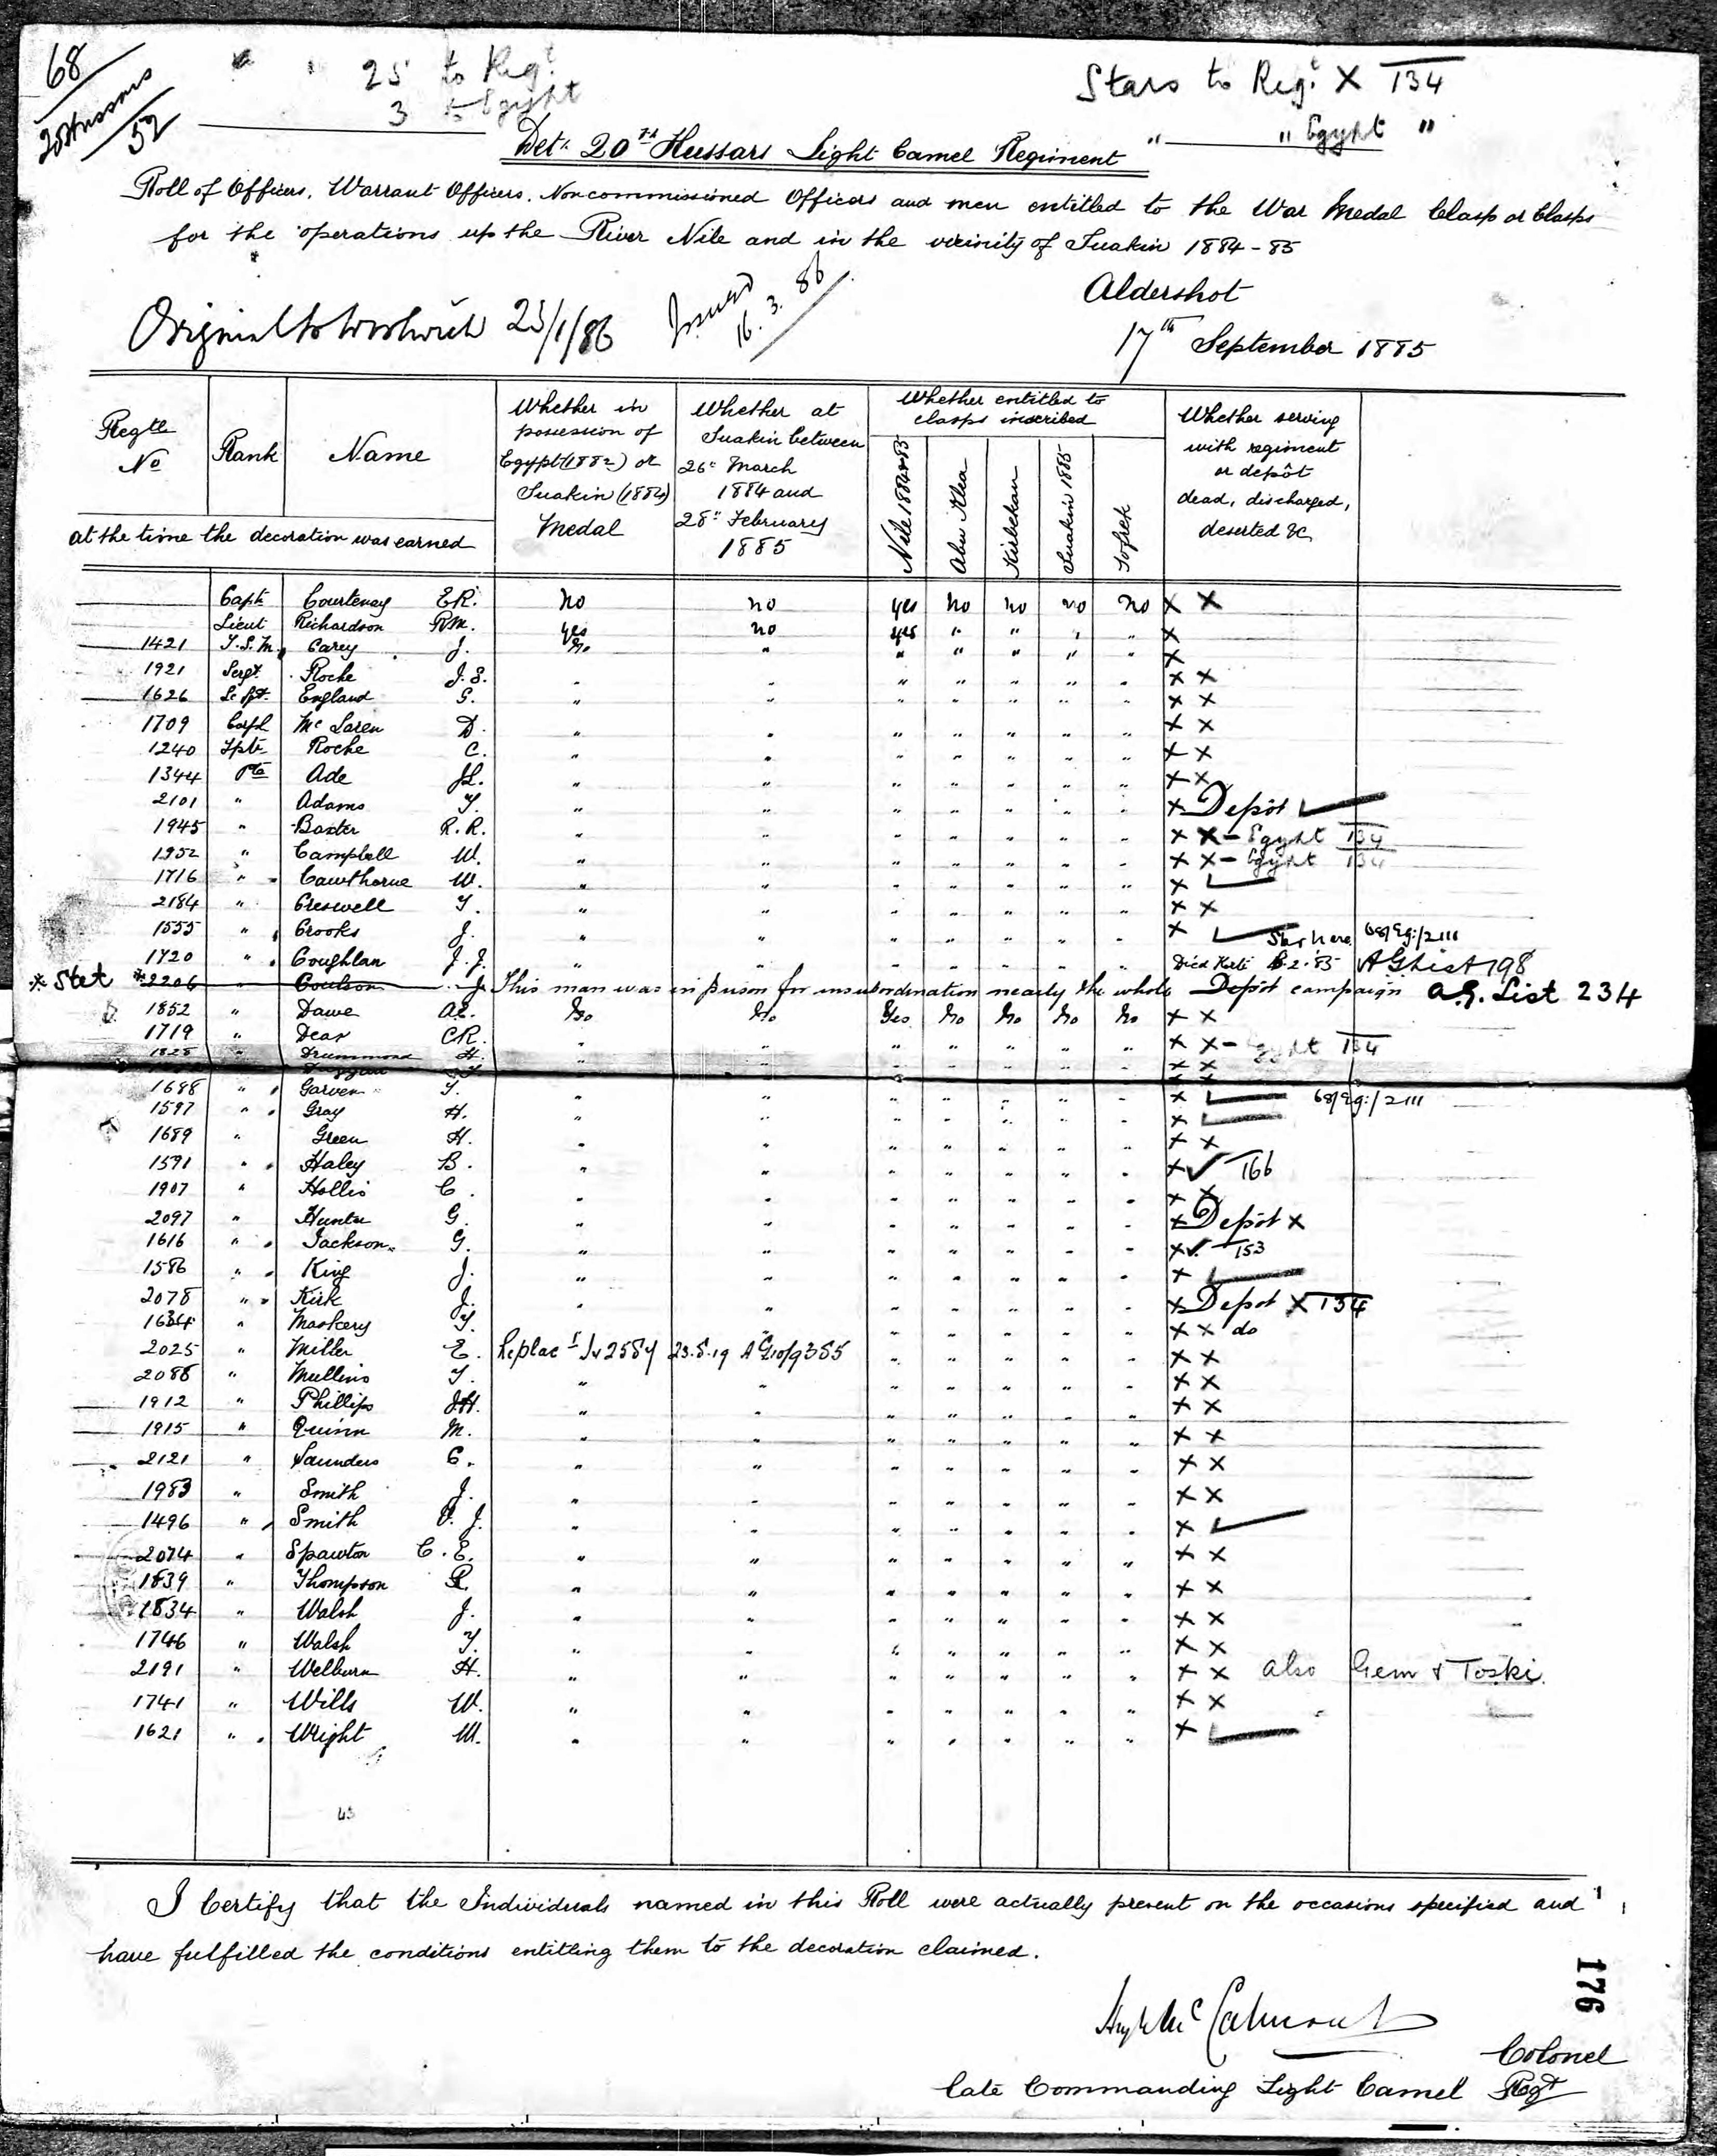 68
20 Hussars
52
" " 25 to Regt.
3 to Egypt
Stars to Regt. X T34
" " Egypt "
Det. 20th Hussars Light Camel Regiment
Roll of Officers, Warrant Officers, Noncommissioned Officers and men entitled to the War Medal Clasp or Clasps
for the operations up the River Nile and in the vicinity of Suakin 1884-85
Original to Woolwich 25/1/86
Issued 16.3.86
Aldershot
17th September 1885
Regtl No
Rank
Name
at the time the decoration was earned
Whether in possession of Egypt (1882) or Suakin (1884) Medal
Whether at Suakin between 26th March 1884 and 28th February 1885
Whether entitled to clasps inscribed
Nile 1884-85
Abu Klea
Kirbekan
Suakin 1885
Tofrek
Whether serving with regiment or depôt dead, discharged, deserted &c,
Capt Courtenay E.R. No no yes no no no no X X
Lieut Richardson R.M. yes no yes " " " " X
1421 T.S.M. Carey J. No " " " " " " X
1921 Sergt. Roche J.S. " " " " " " " X X
1626 England G. " " " " " " " X X
1709 Corpl McLaren D. " " " " " " " X X
1240 Tptr Roche C. " " " " " " " X X
1344 Pte Ade " " " " " " " X X
2101 " Adams T. " " " " " " " X Depôt ✓
1945 " Baxter R.R. " " " " " " " X X - Egypt T34
1952 " Campbell W. " " " " " " " X X - Egypt T34
1716 " Cawthorne W. " " " " " " " X ✓
2184 " Creswell T. " " " " " " " X X
1555 " Crooks J. " " " " " " " X ✓ Star here 68/Eg:/2111
1720 " Coughlan J.J. " " " " " " " Died Korti .2.85 AG List 198
* Stet *2206 " Coulson J. This man was in prison for insubordination nearly the whole Depôt campaign A.G. List 234
1852 " Dawe No No Yes No No No No X X
1719 " Dear C.R. " " " " " " " X X - Egypt T34
1828 " Drummond H. " " " " " " " X X
Duggan
1688 " Garven T. " " " " " " " X ✓ 68/Eg:/2111
1597 " Gray H. " " " " " " " X ✓
1689 " Green H. " " " " " " " X X
1591 " Haley B. " " " " " " " X ✓ T66
1907 " Hollis C. " " " " " " " X X
2097 " Hunter G. " " " " " " " X Depôt X
1616 " Jackson G. " " " " " " " X ✓ T53
1586 " King J. " " " " " " " X ✓
2078 " Kirk J. " " " " " " " X Depot X T34
1634 " Maskery T. " " " " " " " X X do
2025 " Miller E. Replact Iv 2584 23.8.19 AG10/9385 " " " " " X X
2088 " Mullins T. " " " " " " " X X
1912 " Phillips J.H. " " " " " " " X X
1915 " Quinn M. " " " " " " " X X
2121 " Saunders C. " " " " " " " X X
1983 " Smith J. " " " " " " " X X
1496 " Smith J. " " " " " " " X ✓
2074 " Spawton C.E. " " " " " " " X X
1839 " Thompson R. " " " " " " " X X
1834 " Walsh J. " " " " " " " X X
1746 " Walsh T. " " " " " " " X X
2191 " Welburn H. " " " " " " " X X also Gem & Toski.
1741 " Wills W. " " " " " " " X X
1621 " Wright W. " " " " " " " X ✓
43
I Certify that the Individuals named in this Roll were actually present on the occasions specified and
have fulfilled the conditions entitling them to the decoration claimed.
176
Hugh McCalmont
Colonel
Late Commanding Light Camel Regt